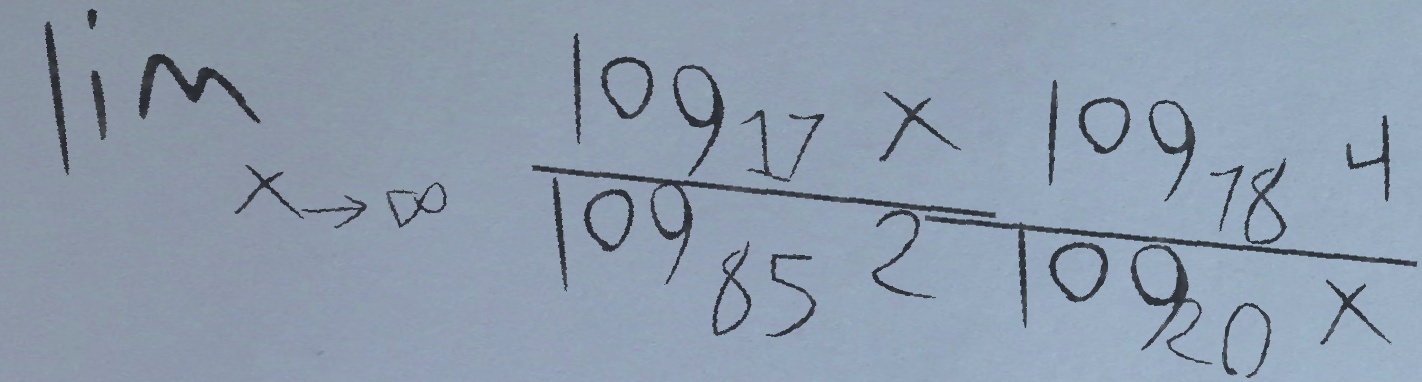 lim x→∞ log₁₇ x / log₈₅ 2 log₇₈ 4 / log₂₀ x